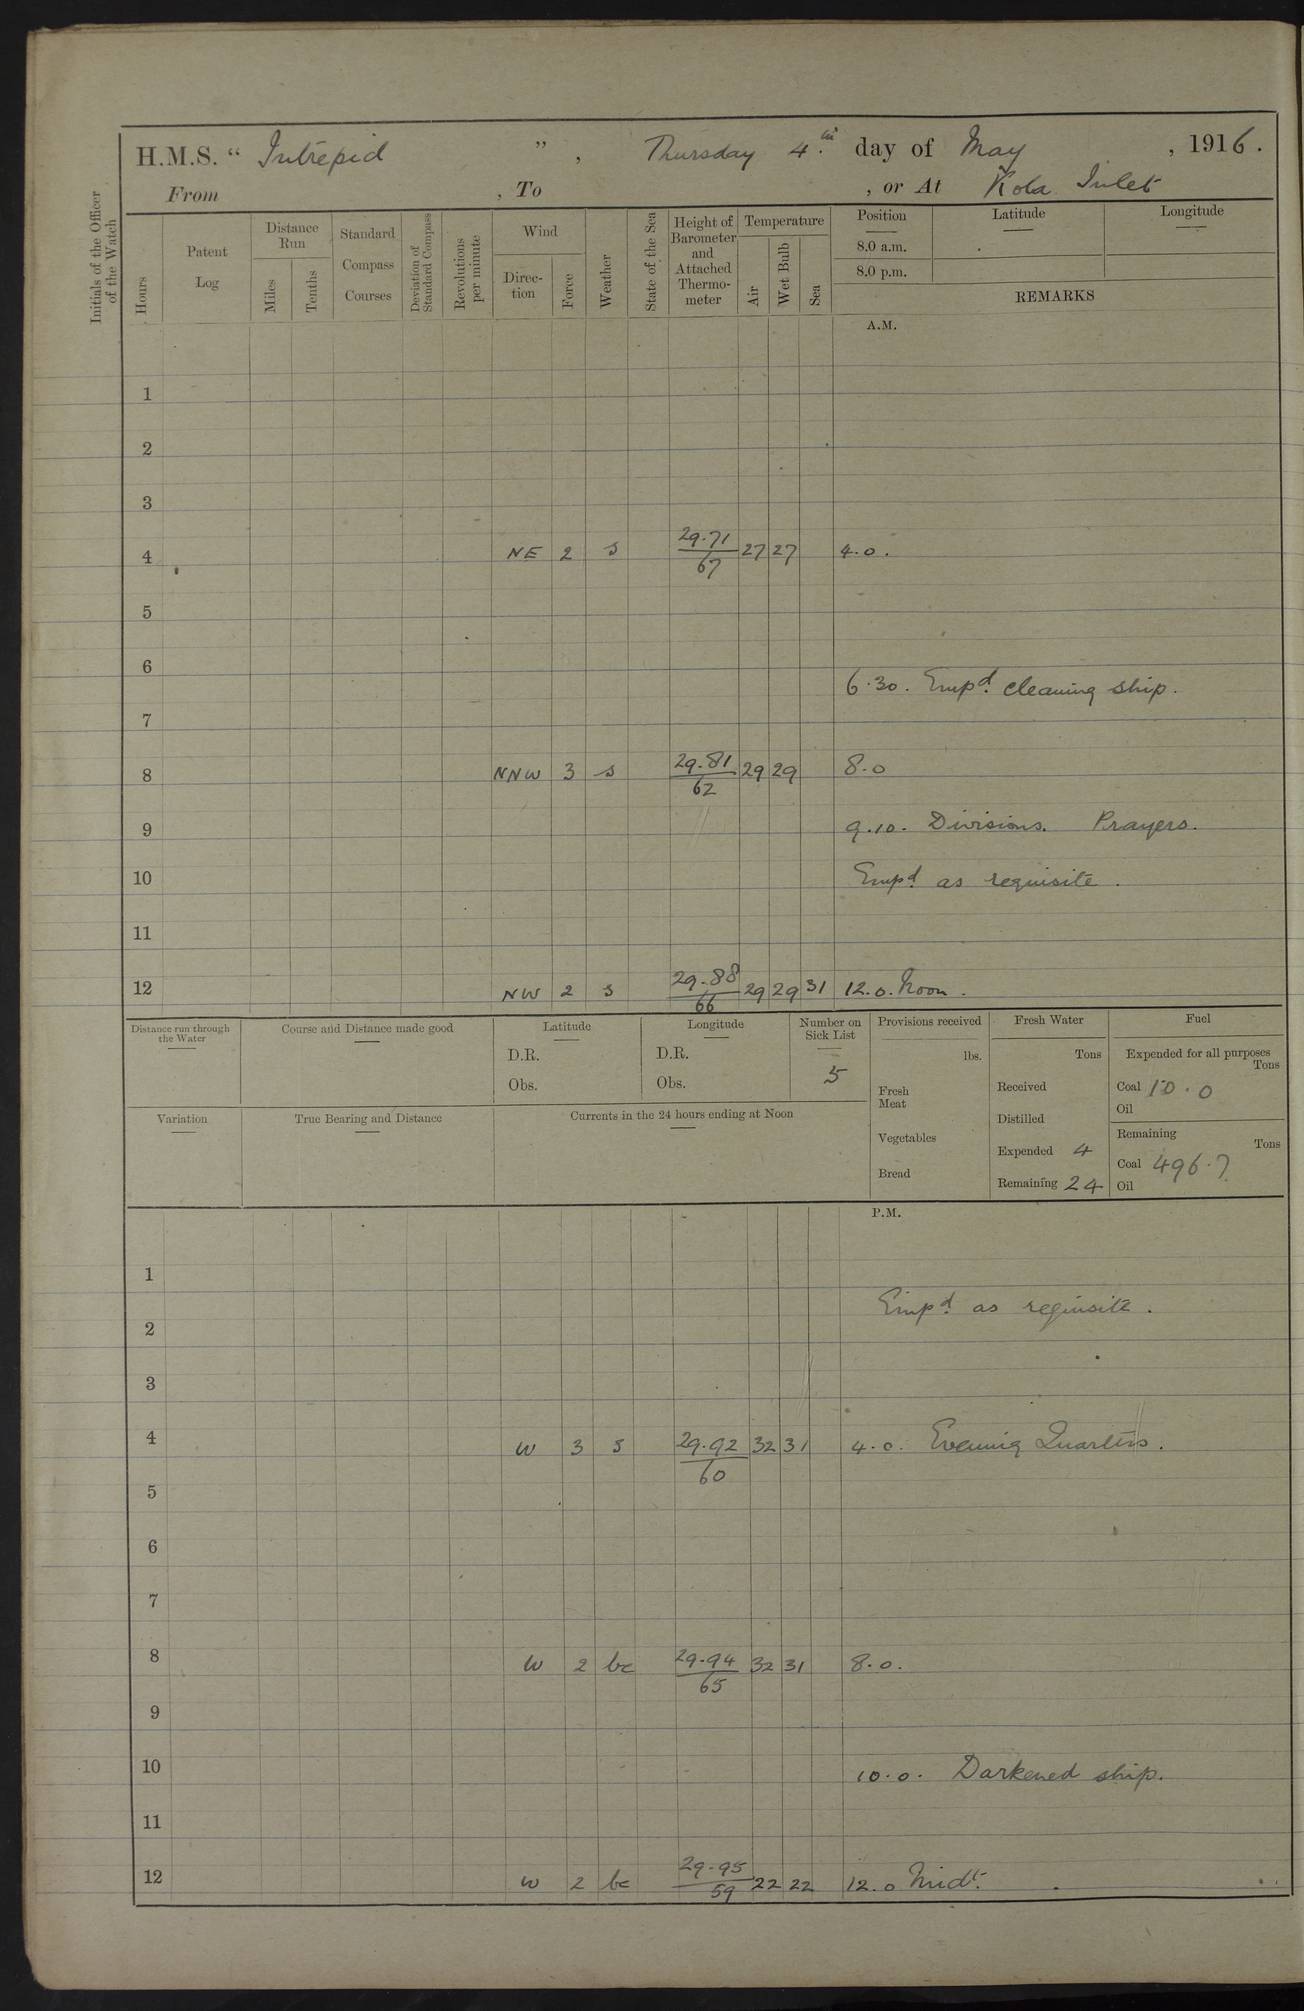 H.M.S. “ Intrepid ” , Thursday 4.th day of May , 1916.
From , To , or At Kola Inlet
Initials of the Officer of the Watch
Hours
Patent Log
Distance Run
Miles
Tenths
Standard Compass Courses
Deviation of Standard Compass
Revolutions per minute
Wind
Direc-tion
Force
Weather
State of the Sea
Height of Barometer and Attached Thermo-meter
Temperature
Air
Wet Bulb
Sea
Position Latitude Longitude
8.0 a.m.
8.0 p.m.
REMARKS
A.M.
1
2
3
4 NE 2 s 29.71/67 27 27 4.0.
5
6
6.30. Empd. cleaning ship.
7
8 NNW 3 s 29.81/62 29 29 8.0
9 9.10. Divisions. Prayers.
10 Empd. as requisite.
11
12 NW 2 s 29.88/66 29 29 31 12.0. Noon.
Distance run through the Water
Course and Distance made good
Latitude
D.R.
Obs.
Longitude
D.R.
Obs.
Number on Sick List
5
Provisions received
lbs.
Fresh Meat
Vegetables
Bread
Fresh Water
Tons
Received
Distilled
Expended 4
Remaining 24
Fuel
Expended for all purposes
Tons
Coal 10.0
Oil
Remaining
Tons
Coal 496.7
Oil
Variation
True Bearing and Distance
Currents in the 24 hours ending at Noon
P.M.
1
Empd. as requisite.
2
3
4 W 3 s 29.92/60 32 31 4.0. Evening Quarters.
5
6
7
8 W 2 bc 29.94/65 32 31 8.0.
9
10 10.0. Darkened ship.
11
12 W 2 bc 29.95/59 22 22 12.0 Midt.